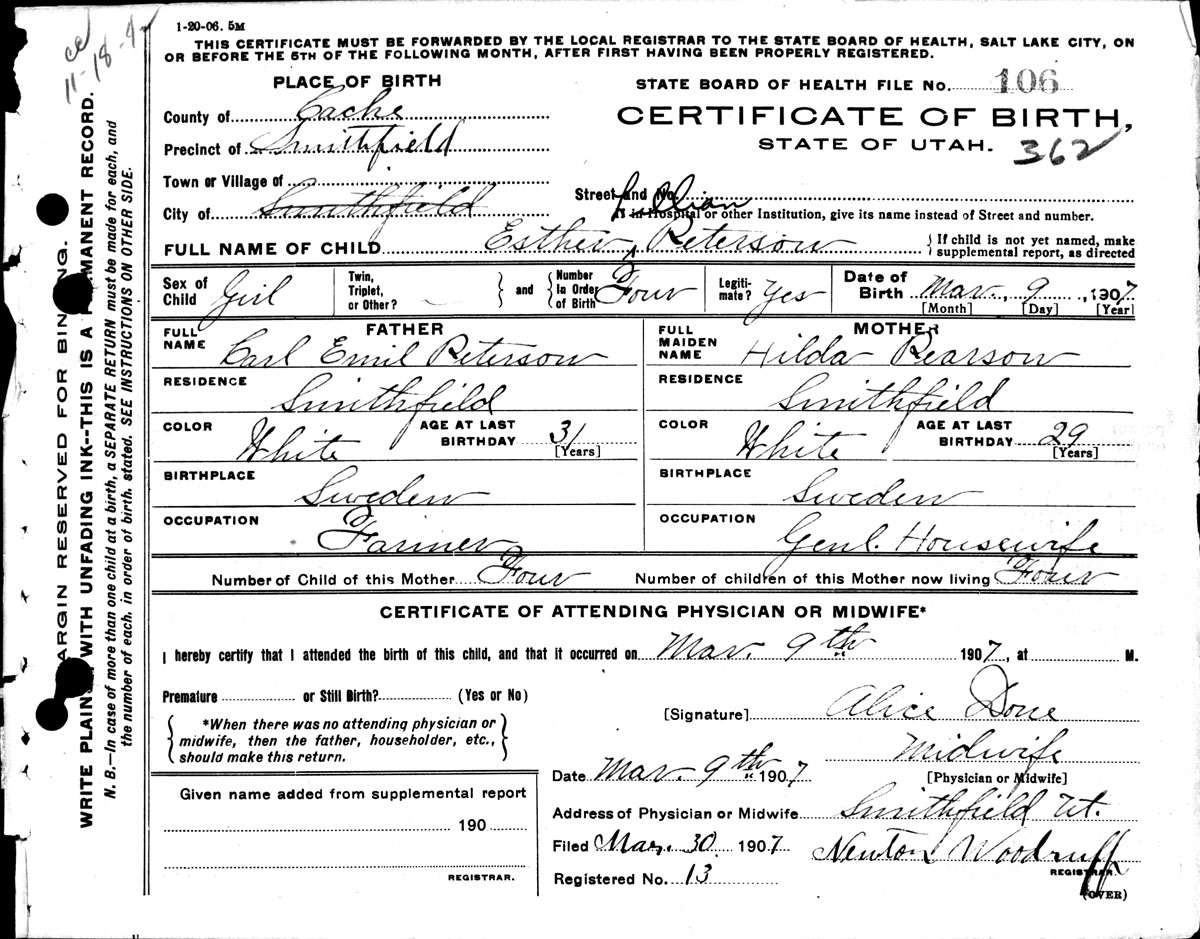 1-20-06. 5M
ce
11-18-4
THIS CERTIFICATE MUST BE FORWARDED BY THE LOCAL REGISTRAR TO THE STATE BOARD OF HEALTH, SALT LAKE CITY, ON
OR BEFORE THE 5TH OF THE FOLLOWING MONTH, AFTER FIRST HAVING BEEN PROPERLY REGISTERED.
PLACE OF BIRTH
STATE BOARD OF HEALTH FILE No. 106
County of Cache
CERTIFICATE OF BIRTH,
Precinct of Smithfield
STATE OF UTAH. 362
Town or Village of
Street and No.
City of Smithfield
Lillian
If in Hospital or other Institution, give its name instead of Street and number.
FULL NAME OF CHILD Esther Peterson
{ If child is not yet named, make
supplemental report, as directed
Sex of Child Girl
Twin, Triplet, or Other? — } and { Number In Order of Birth Four
Legitimate? Yes
Date of Birth Mar. 9, 1907
[Month] [Day] [Year]
FATHER
FULL NAME Carl Emil Peterson
RESIDENCE Smithfield
COLOR White AGE AT LAST BIRTHDAY 31 [Years]
BIRTHPLACE Sweden
OCCUPATION Farmer
MOTHER
FULL MAIDEN NAME Hilda Pearson
RESIDENCE Smithfield
COLOR White AGE AT LAST BIRTHDAY 29 [Years]
BIRTHPLACE Sweden
OCCUPATION Genl. Housewife
Number of Child of this Mother Four Number of children of this Mother now living Four
CERTIFICATE OF ATTENDING PHYSICIAN OR MIDWIFE*
I hereby certify that I attended the birth of this child, and that it occurred on Mar. 9th 1907, at M.
Premature or Still Birth? (Yes or No)
{ *When there was no attending physician or
midwife, then the father, householder, etc.,
should make this return. }
[Signature] Alice Done
Midwife
Date Mar. 9th 1907 [Physician or Midwife]
Given name added from supplemental report
190
REGISTRAR.
Address of Physician or Midwife Smithfield Ut.
Filed Mar. 30 1907 Newton Woodruff
REGISTRAR.
Registered No. 13
(OVER)
ARGIN RESERVED FOR BIN NG.
WRITE PLAINL WITH UNFADING INK--THIS IS A P MANENT RECORD.
N. B.—In case of more than one child at a birth, a SEPARATE RETURN must be made for each, and
the number of each, in order of birth, stated. SEE INSTRUCTIONS ON OTHER SIDE.